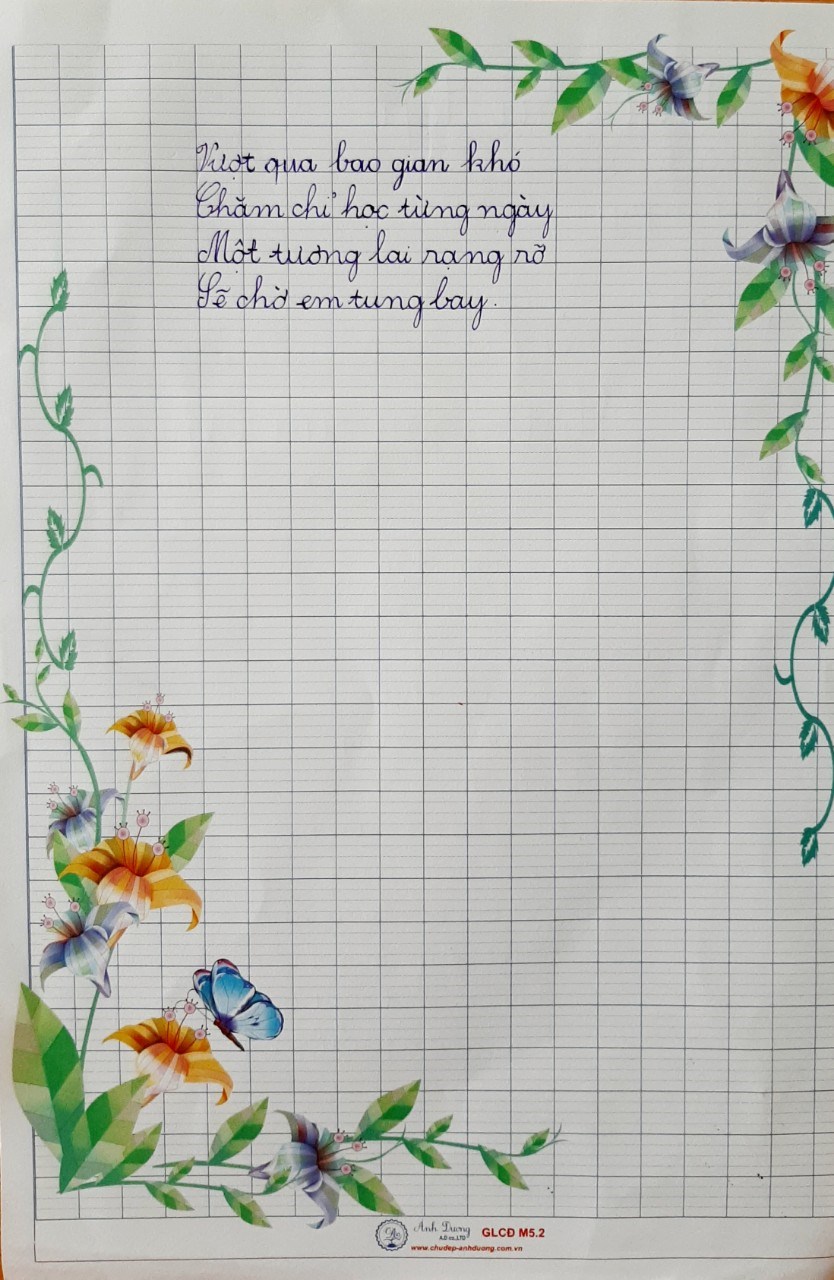 Vượt qua bao gian khó
Chăm chỉ học từng ngày
Một tương lai rạng rỡ
Sẽ chờ em tung bay.
Ánh Dương
A.D co.,LTD
GLCĐ M5.2
www.chudep-anhduong.com.vn